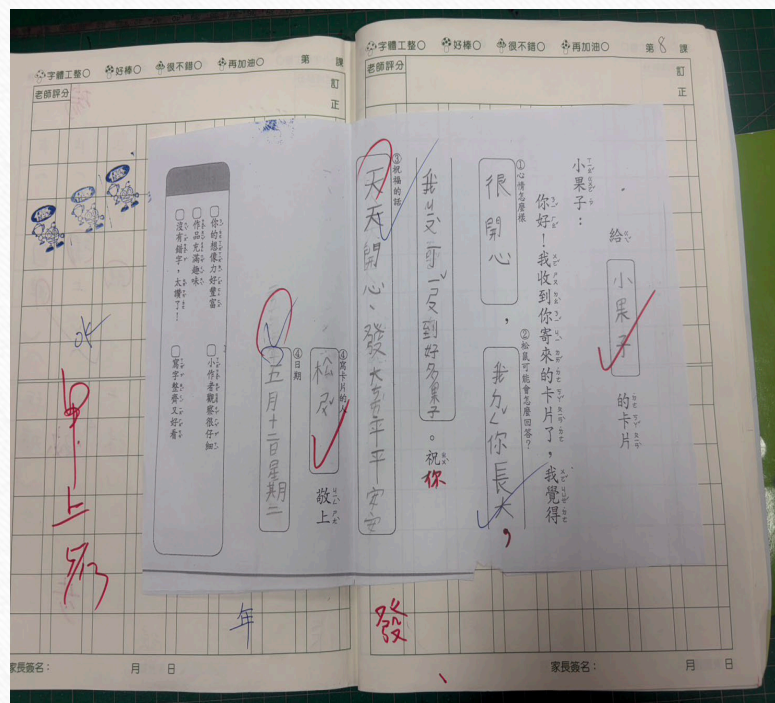 字體工整○ 好棒○ 很不錯○ 再加油○ 第8課
老師評分
訂正
給 小果子 的卡片
小果子：
你好！我收到你寄來的卡片了，我覺得
①心情怎麼樣
很開心，
②松鼠可能會怎麼回答？
我ㄅㄤ你長大，
到好多果子。祝你
③祝福的話
天天開心、發大
平平安安
④寫卡片的人
松 敬上
④日期
五月十二日星期二
□你的想像力好豐富
□作品充滿趣味
□沒有錯字，太讚了！
□小作者觀察很仔細
□寫字整齊又好看
發
家長簽名： 月 日
字體工整○ 好棒○ 很不錯○ 再加油○ 第 課
老師評分
訂正
年
5/13
家長簽名： 月 日